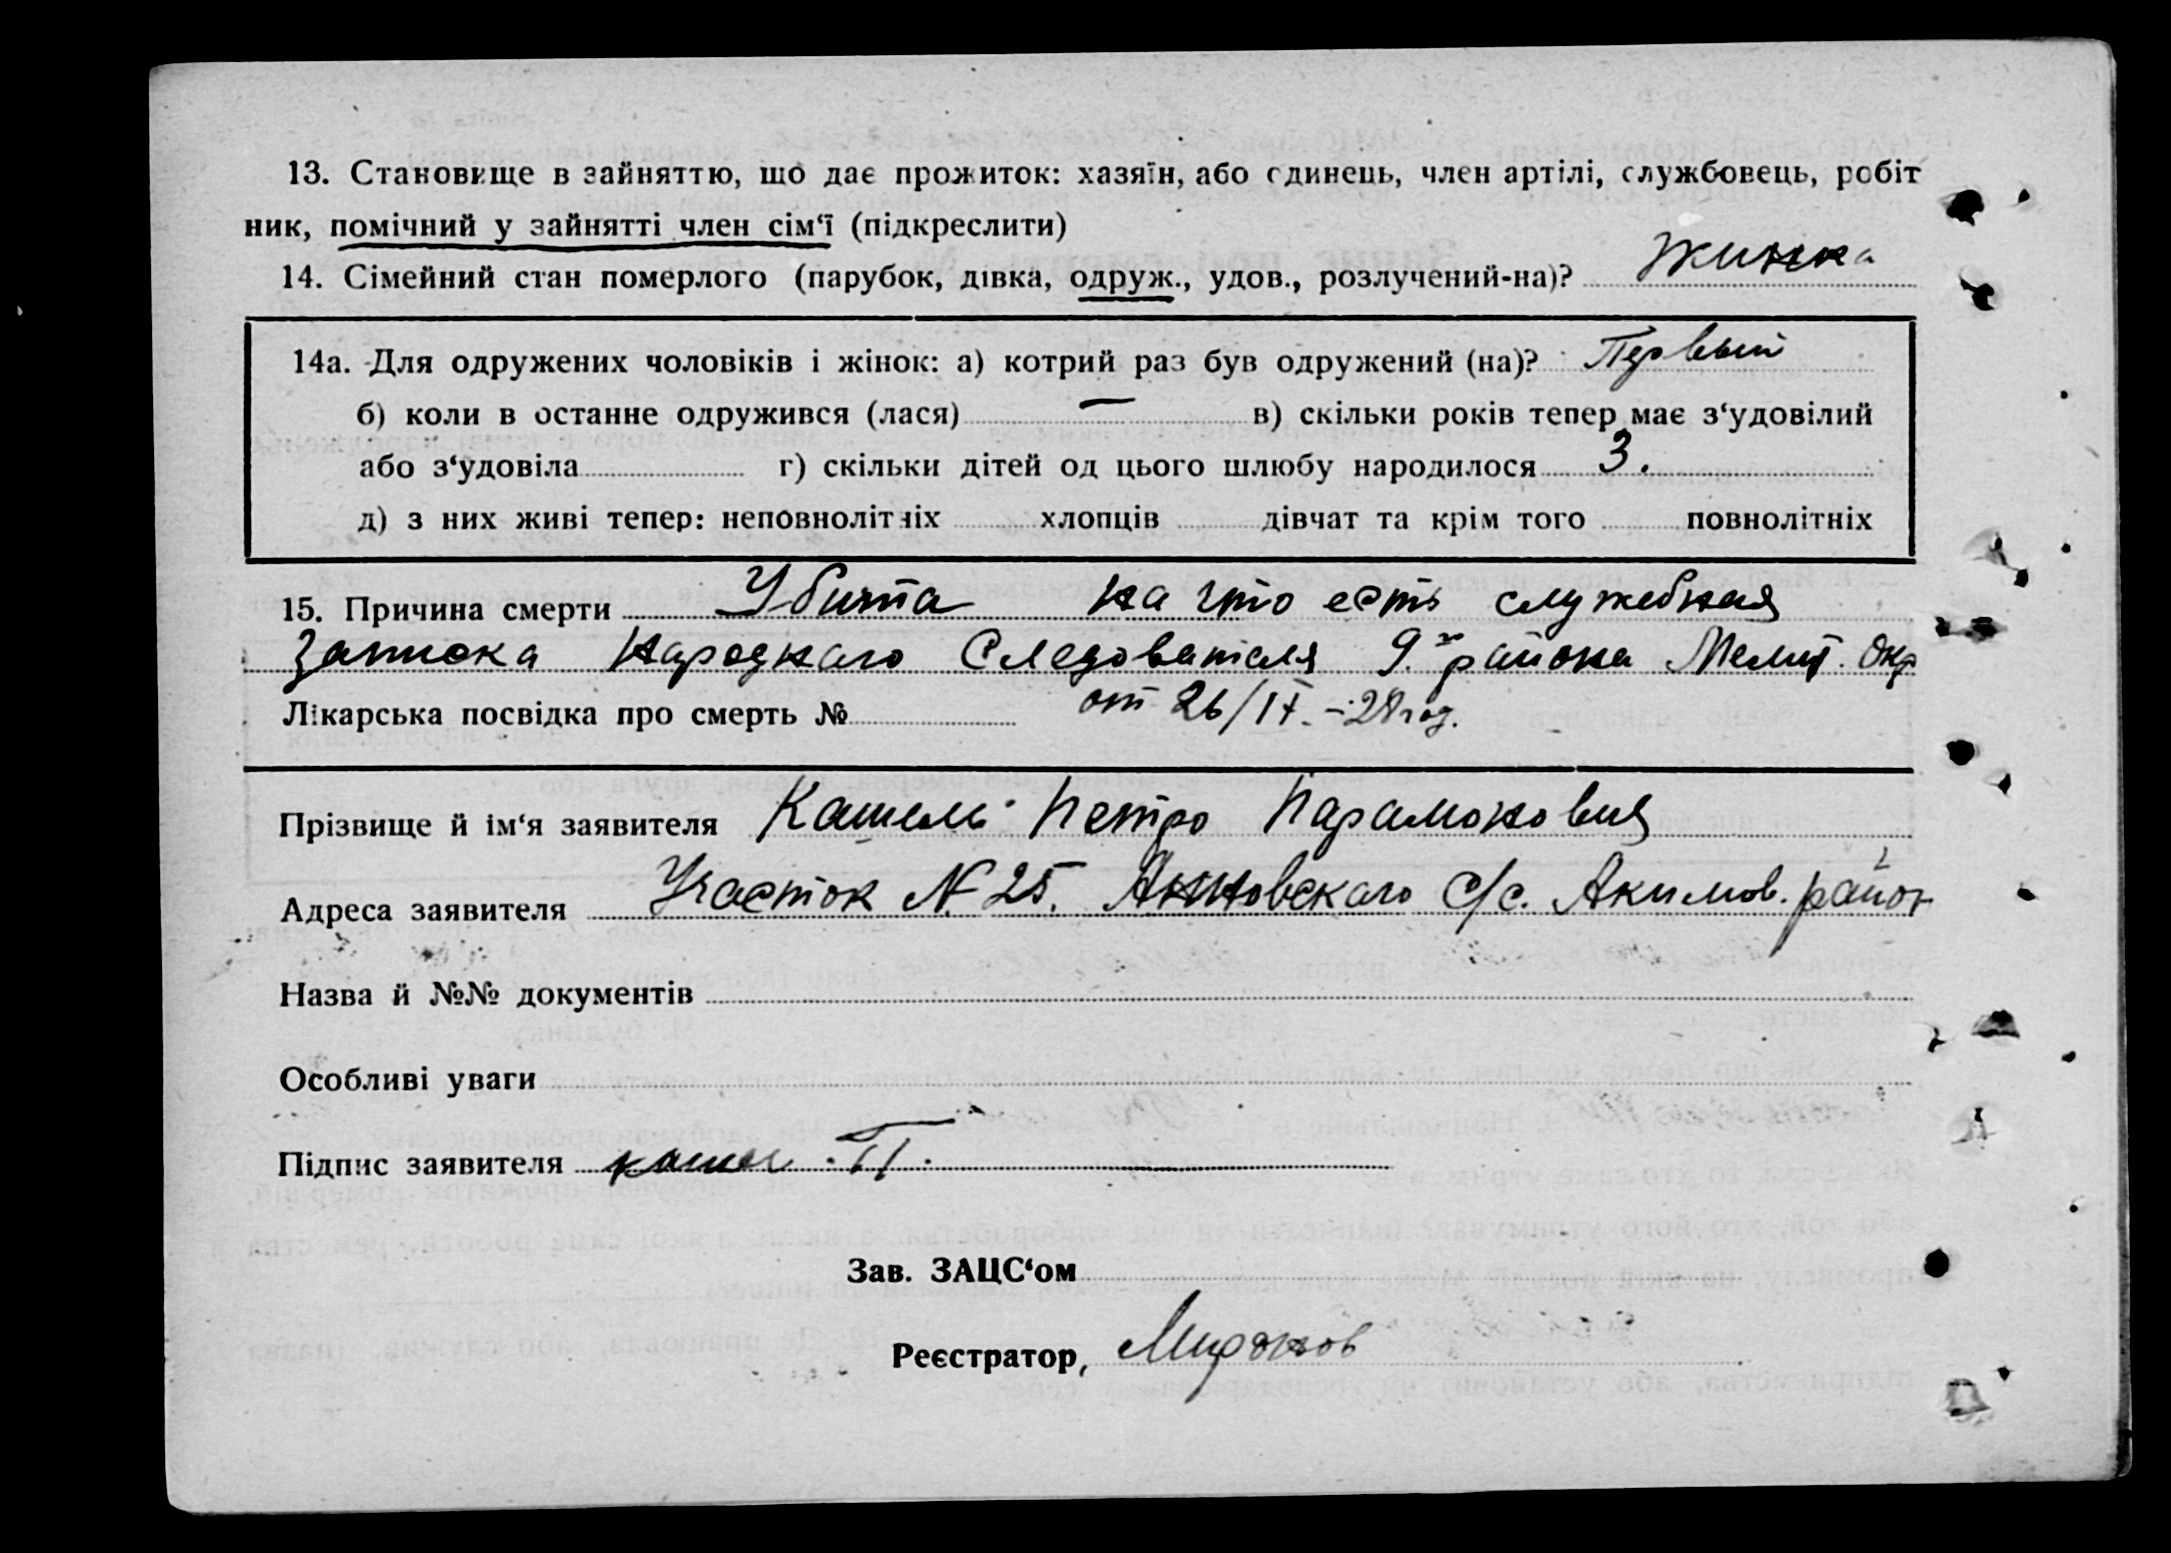 13. Становище в зайняттю, що дає прожиток: хазяїн, або єдинець, член артілі, службовець, робіт
ник, помічний у зайнятті член сім‘ї (підкреслити)
14. Сімейний стан померлого (парубок, дівка, одруж., удов., розлучений-на)? жинка
14а. Для одружених чоловіків і жінок: а) котрий раз був одружений (на)? Первый
б) коли в останне одружився (лася) — в) скільки років тепер має з‘удовілий
або з‘удовіла г) скільки дітей од цього шлюбу народилося 3.
д) з них живі тепер: неповнолітніх хлопців дівчат та крім того повнолітніх
15. Причина смерти Убита на что есть служебная
Записка Народнаго Следователя 9. района Мелит. Окр
Лікарська посвідка про смерть № от 26/IX.–28 год.
Прізвище й ім‘я заявителя Кашель Петро Парамонович
Адреса заявителя Участок N. 25. Анновскаго с/с. Акимов. район
Назва й №№ документів
Особливі уваги
Підпис заявителя
Зав. ЗАЦС‘ом
Реєстратор, Миронов